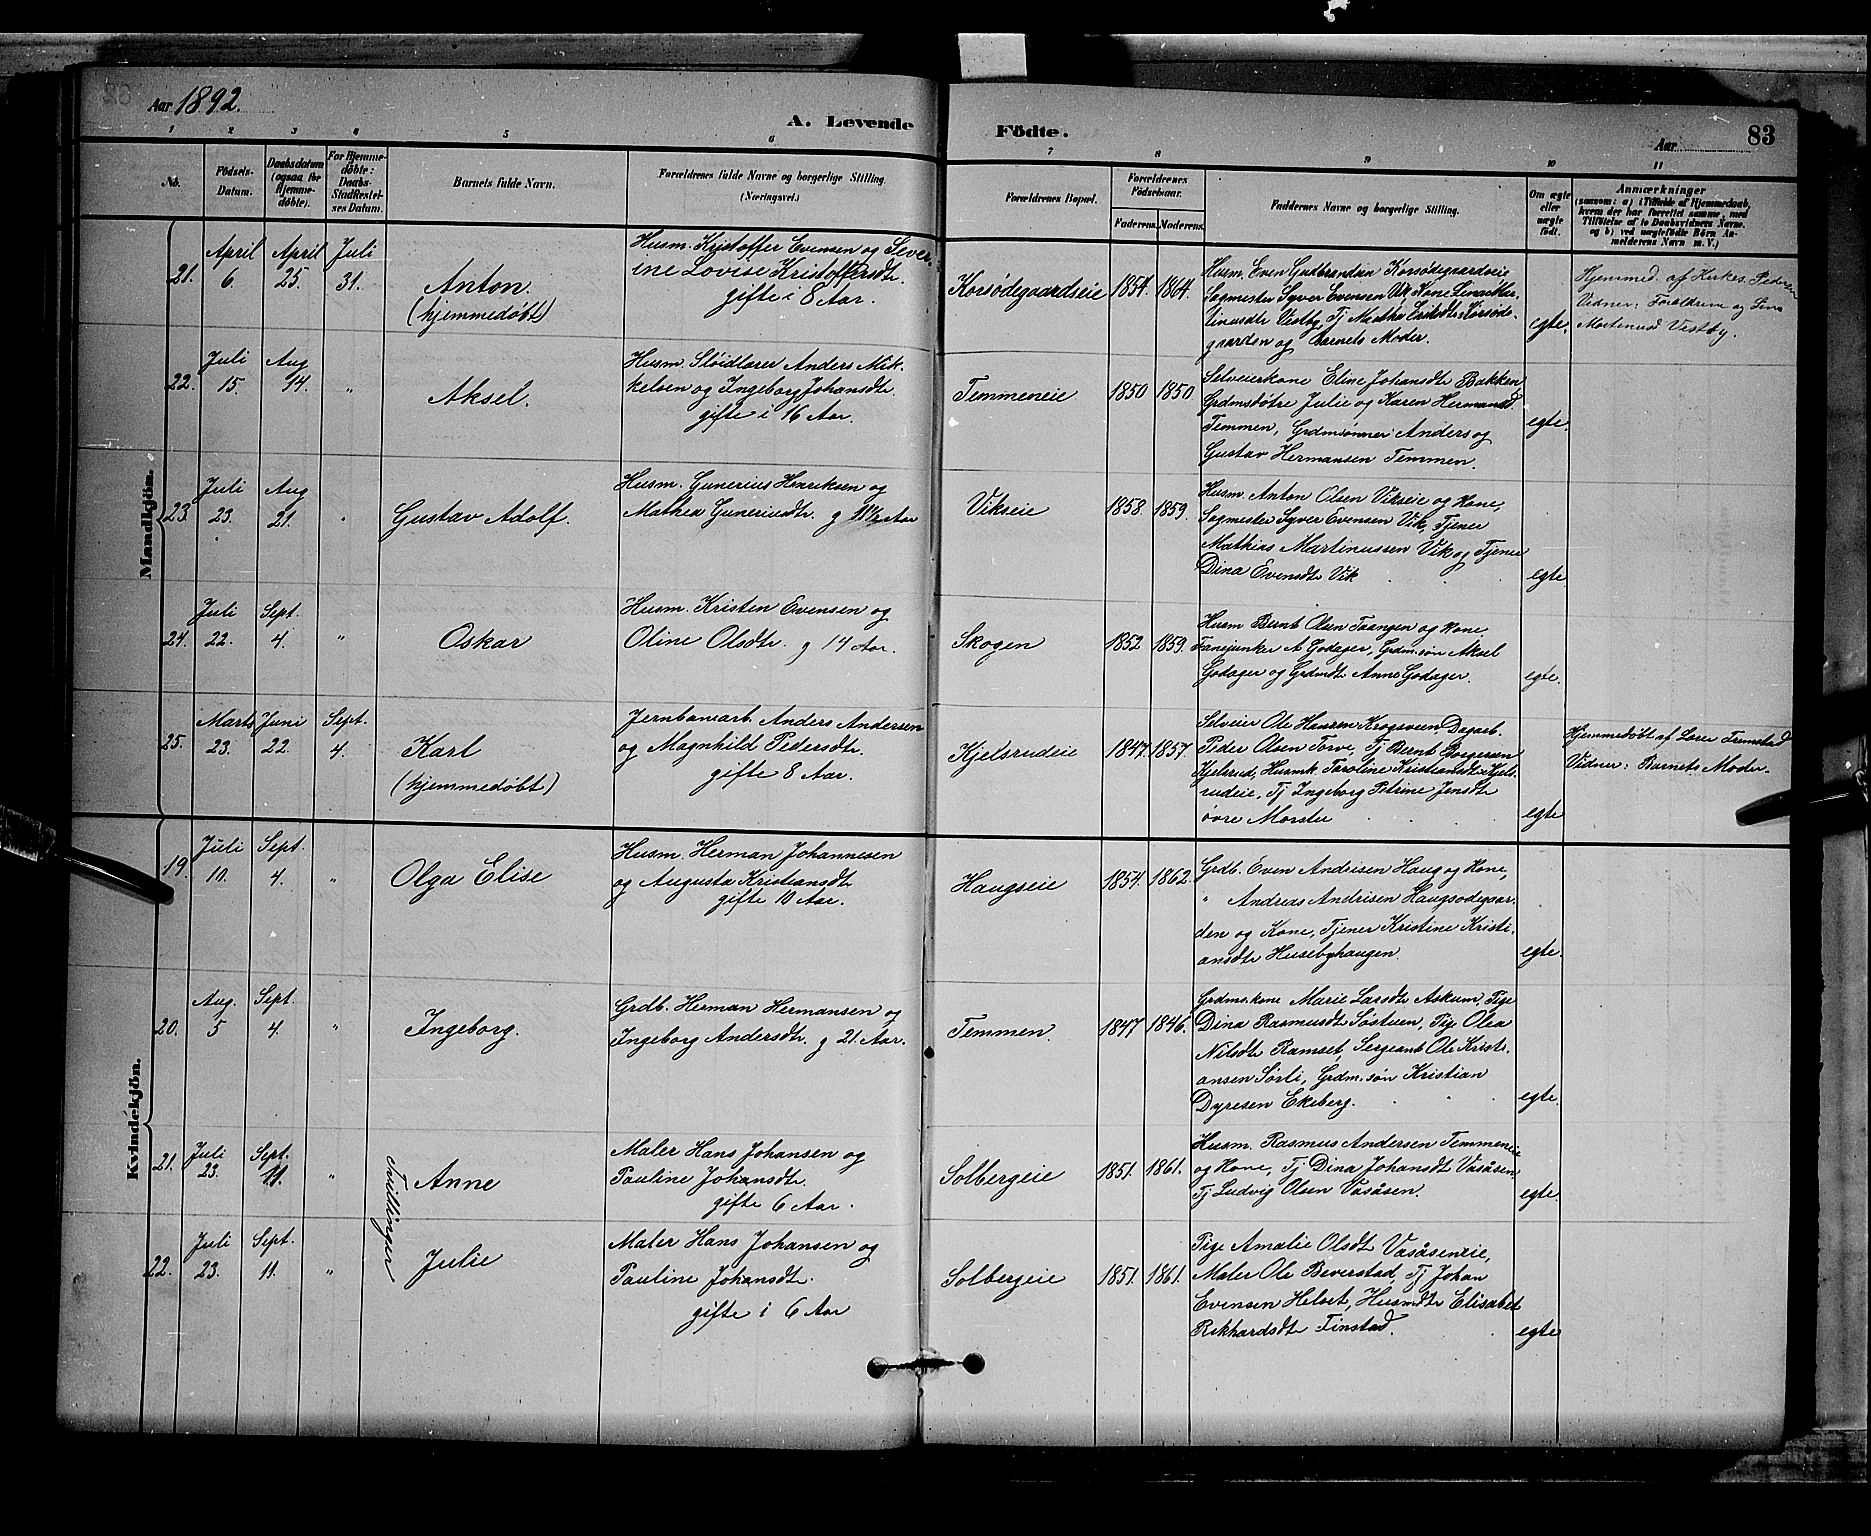 Aar 1892.
A. Levende Födte.
Aar
83
1 2 3 4 5 6 7 8 9 10 11
No.
Födsels-
Datum.
Daabsdatum
(ogsaa for
Hjemme-
döbte).
For Hjemme-
döbte:
Daabs-
Stadfæstel-
ses Datum.
Barnets fulde Navn.
Forældrenes fulde Navne og borgerlige Stilling.
(Næringsvei.)
Forældrenes Bopæl.
Forældrenes
Födselsaar.
Faderens. Moderens.
Faddernes Navne og borgerlige Stilling.
Om ægte
eller
uægte
födt.
Anmærkninger
(saasom: a) i Tilfælde af Hjemmedaab,
hvem der har forrettet samme, med
Tilföielse af to Daabsvidners Navne,
og b) ved uægtefödte Börn An-
melderens Navn m. V.)
Mandkjön.
21.
April
6.
April
25.
Juli
31.
Anton.
(hjemmedøbt)
Husm. Kristoffer Evensen og Sever-
ine Lovise Kristoffersdt.
gifte i 8 Aar.
Korsødegaardseie
1854. 1864.
Husm. Even Gudbrandsen Korsødegaardseie
Sagmester Syver Evensen Vik, Kone Lina Mar-
tinusdtr Vestby, Tj Martha Korsøde-
gaarden og Barnets Moder.
egte.
Hjemmed. af Kirkes. Pedersen
Vidner: Forældrene og Lina
Vestby.
22.
Juli
15.
Aug
14.
"
Aksel.
Husm. Sløidlærer Anders Mik-
kelsen og Ingeborg Johansdt.
gifte i 16 Aar.
Temmeneie
1850 1850
Selveierkone Eline Johansdt Bakken
Grdmsdøtre Julie og Karen Hermansd
Temmen, Grdmsønner Anders og
Gustav Hermansen Temmen.
egte.
23.
Juli
23.
Aug
21.
"
Gustav Adolf.
Husm. Gunerius Henriksen og
Mathea Guneriusdtr. g 11½ Aar
Vikseie
1858. 1859.
Husm. Anton Olsen Vikseie og Kone,
Sagmester Syver Evensen Vik, Tjener
Mathias Martinussen Vik og Tjener
Dina Evensdt Vik
egte
24.
Juli
22.
Sept.
4.
"
Oskar
Husm. Kristen Evensen og
Oline Olsdtr. g 14 Aar.
Skogen
1852 1859.
Husm Bernt Olsen Taangen og Kone
Fanejunker A Godager, Grdm.søn Aksel
Godager og Grdmdt Anne Godager.
egte.
25.
Marts
23.
Juni
22.
Sept.
4.
Karl
(hjemmedøbt)
Jernbanearb. Anders Andersen
og Magnhild Pedersdt.
gifte 8 Aar.
Kjelsrudeie
1847. 1857.
Selveier Ole Hansen Krogsveen, Dagarb.
Peder Olsen Torve, Tj Bernt Borgersen
Kjelsrud, Husmk. Karoline Kristiansdt Kjels-
rudeie, Tj Ingeborg Petrine Jensdt
øvre Morstu
egte
Hjemmedøbt af Lærer Fremstad
Vidner: Barnets Moder.
Kvindekjön.
19.
Juli
10.
Sept.
4.
"
Olga Elise
Husm. Herman Johannesen
og Augusta Kristiansdt
gifte 10 Aar.
Haugseie
1854. 1862.
Grdb. Even Andrisen Haug og Kone,
" Andreas Andrisen Haugsødegaar-
den og Kone, Tjener Kristine Kristi-
ansdt Husebyhaugen.
egte.
20.
Aug.
5
Sept.
4.
"
Ingeborg.
Grdb. Herman Hermansen og
Ingeborg Andersdtr. g 21. Aar.
Temmen.
1847 1846.
Grdms.kone Marie Larsdt Askum, Pige
Dina Rasmusdt Søstuen, Pige Olea
Nilsdt Ramset, Sergeant Ole Kristi-
ansen Sørli, Grdm.søn Kristian
Dyresen Ekeberg.
egte.
21.
Juli
23.
Sept.
11.
"
Tvillinger
Anne
Maler Hans Johansen og
Pauline Johansdt.
gifte 6 Aar.
Solbergeie
1851. 1861.
Husm. Rasmus Andersen Temmeneie
og Kone, Tj Dina Johansdt Vasåsen,
Tj Ludvig Olsen Vasåsen.
egte.
22.
Juli
23.
Sept.
11.
"
Julie
Maler Hans Johansen og
Pauline Johansdt.
gifte i 6 Aar
Solbergeie
1851. 1861.
Pige Amalie Olsdt Vasåseneie,
Maler Ole Beverstad, Tj Johan
Evensen Helset, Husmdt Elisabet
Rikhardsdt Finstad.
egte